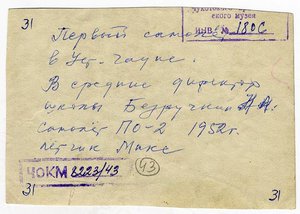 31
Чукотского
ского музея
ИНВ. № 180С
Первый самолёт
в Уст-Чауне.
В средние директор
школы Безручкин Н.
самолёт ПО-2 1952г.
лётчик Макс
ЧОКМ 8223/43
43
31
31